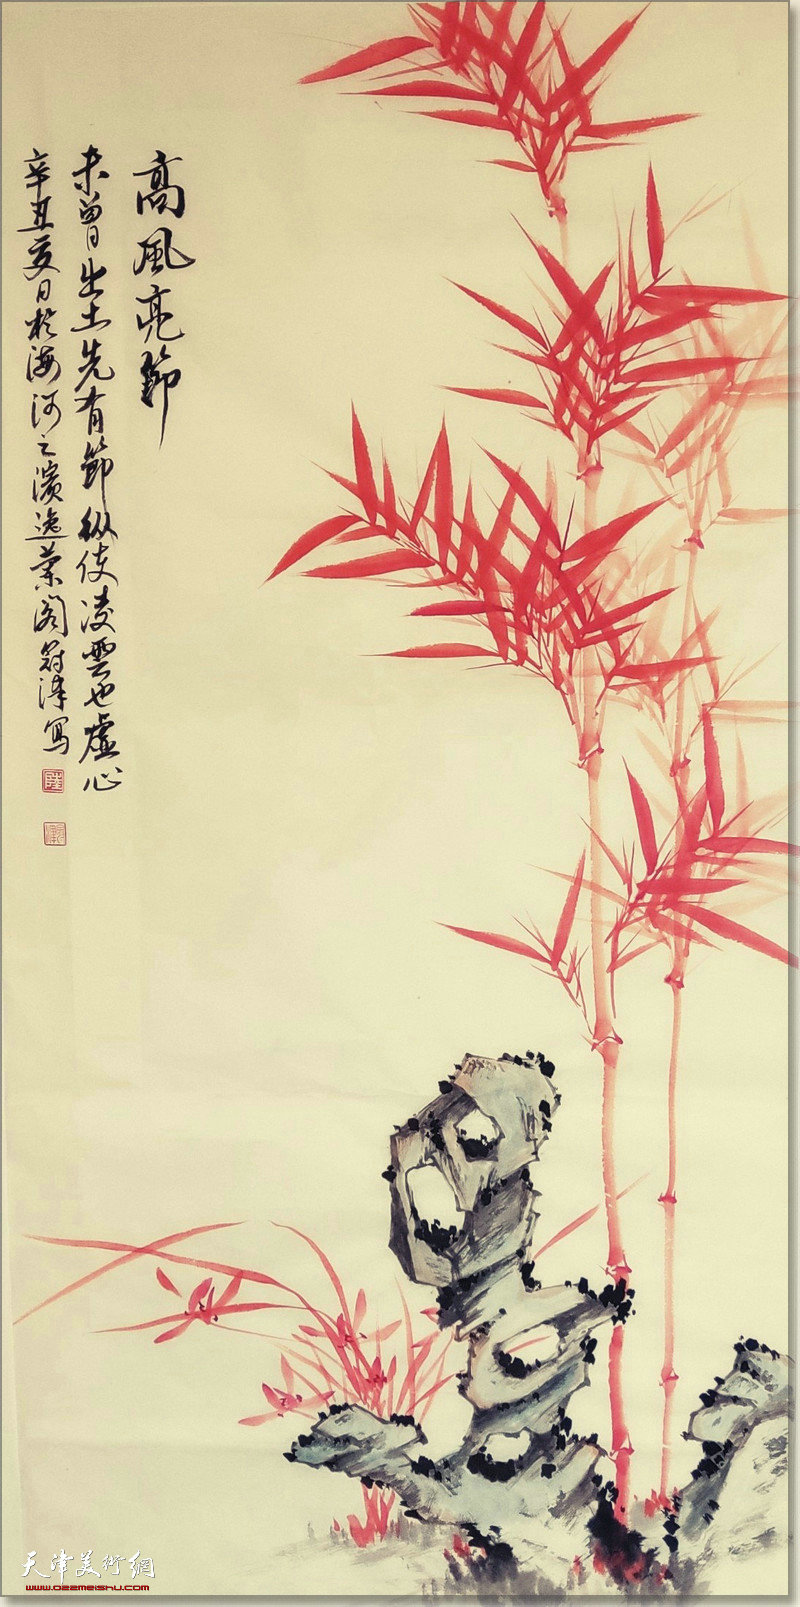 高風亮節
未曾出土先有節纵使凌雲也虛心
辛丑夏日於海河之濱逸蘭閣冠津寫
天津美術網
www.022meishu.com